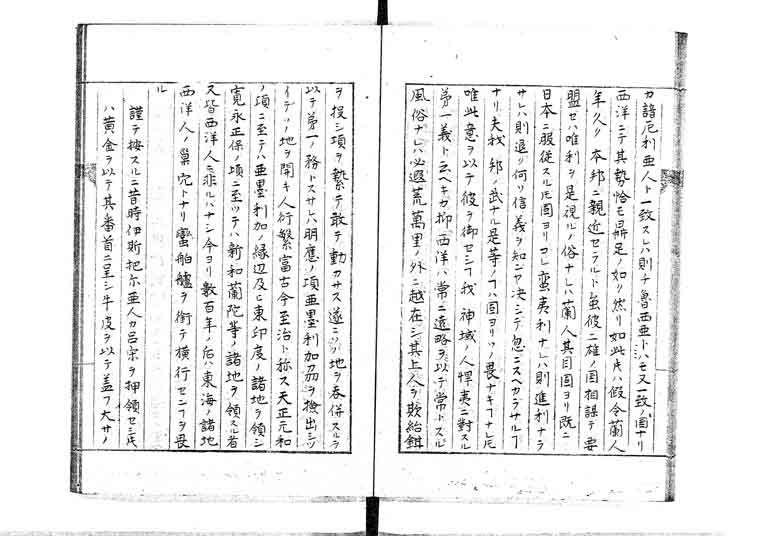 カ諳厄利亜人ト一致スレハ則チ魯西亜トハモ又一致ノ国ナリ
西洋ニテ其勢恰モ鼎足ノ如リ然リ如此氏ハ假令蘭人
年久ク 本邦ニ親近セラルト虽彼二雄ノ国相謀テ要
盟セハ唯利ヲ是視ルノ俗ナレハ蘭人其国固ヨリ既ニ
日本ニ服従スルモ固ヨリコレ蛮夷利ナレハ則進利ナラ
サレハ則退ク何ソ信義ヲ知ンヤ决シテ忽ニスヘカラサルヿ
ナリ夫我 邦ノ武ナル是等ノヿハ固ヨリソノ畏ナキヿナレ氏
唯此意ヲ以テ彼ヲ御セシヿ我 神域ノ人悍夷ニ對スル
第一義ト云ヘキカ抑 西洋ハ常ニ遠略ヲ以テ常トスル
風俗ナレハ必遐荒萬里ノ外ニ越在シ其上人ヲ欺紿餌
ヲ投シ項ヲ縶テ敢テ動カサス遂ニソノ地ヲ吞併スルヲ
以テ第一ノ務トスサレハ明應ノ頃亜墨利加刕ヲ撿出シソ
イテソノ地ヲ開キ人行繁富古今至治ト称ス天正元和
ノ頃ニ至テハ亜墨利加ノ縁辺及ヒ東印度ノ諸地ヲ領シ
寛永正保ノ頃ニ至ツテハ新和蘭陀等ノ諸地ヲ領スル者
又皆西洋人ニ非ルハナシ今ヨリ數百年ノ后ハ東海ノ諸地
西洋人ノ巢穴トナリ蠻舶艫ヲ銜テ横行センヿヲ畏
ル
謹テ按スルニ昔時伊斯把尓亜人カ呂宋ヲ押領セシ氏
ハ黄金ヲ以テ其番首ニ呈シ牛皮ヲ以テ盖フ大サノ